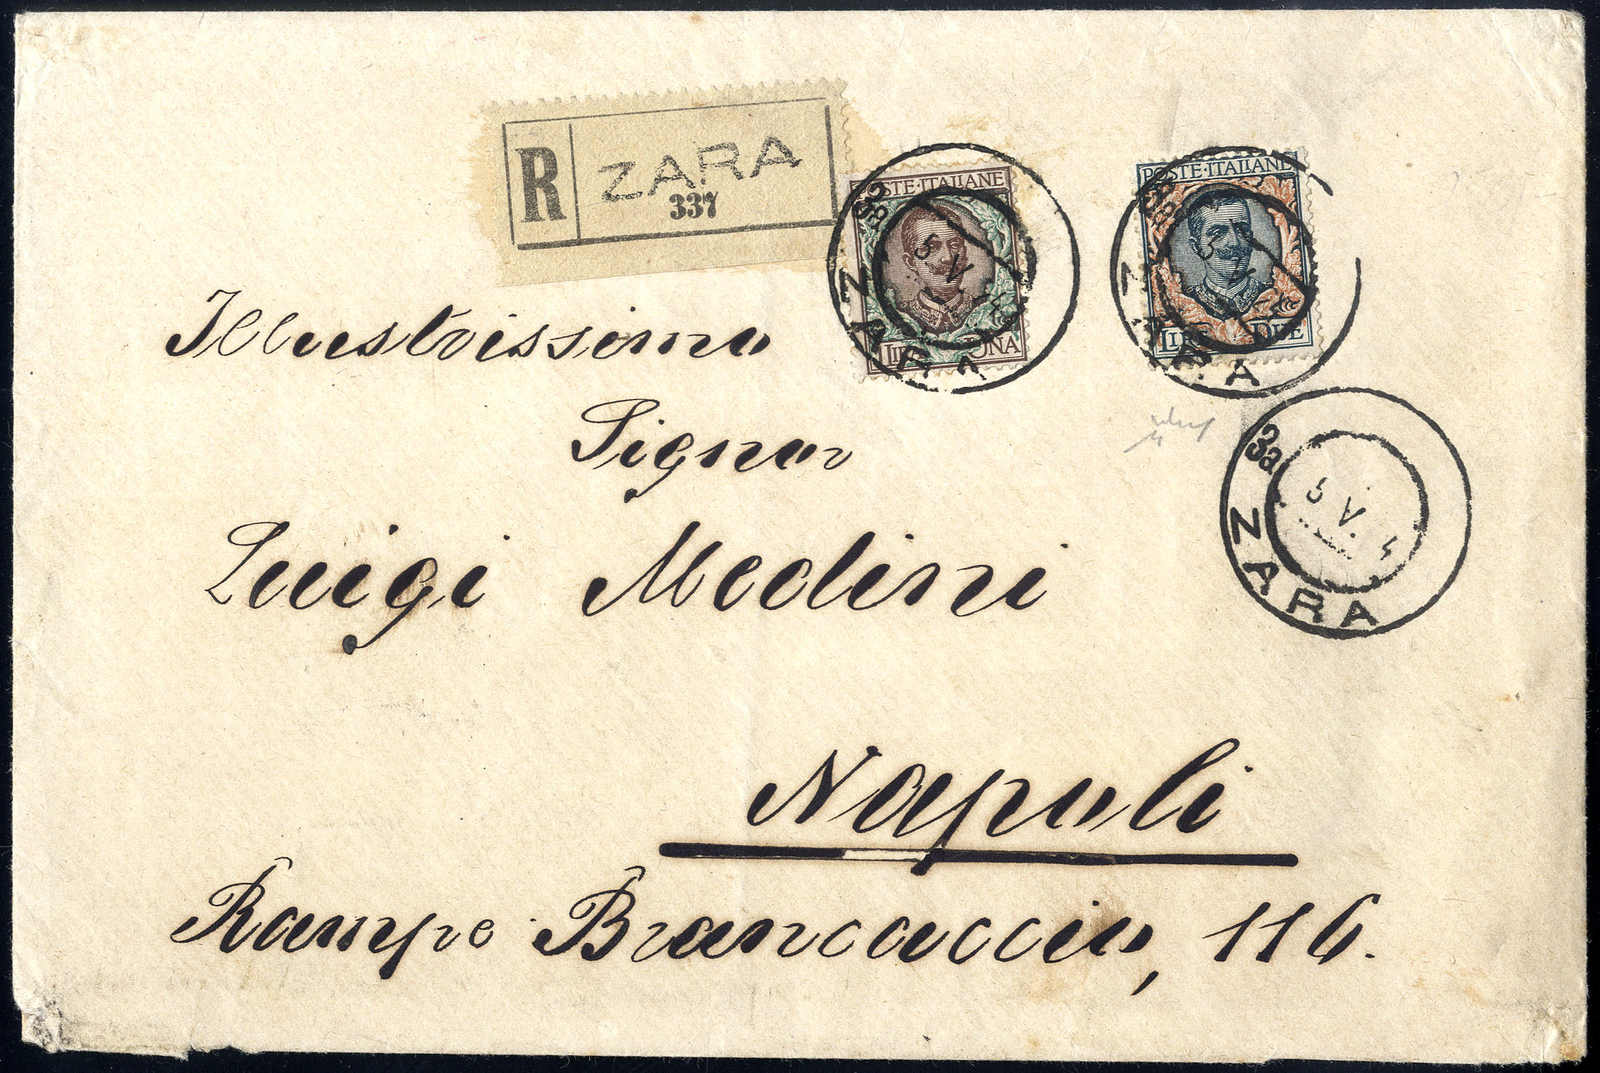 R ZARA
337
POSTE·ITALIANE
UNA
POSTE·ITALIANE
LIRE DUE
3a
5 V
ZARA
3a
5 V
ZARA
3a
5 V. 4
ZARA
Illustrissimo
Signor
Luigi Medini
Napoli
Rampe Brancaccio, 116.